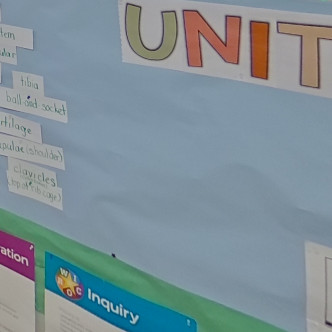 UNIT
tem
ular
tibia
ball and socket
rtilage
apulae (shoulder)
clavicles
ation
Inquiry